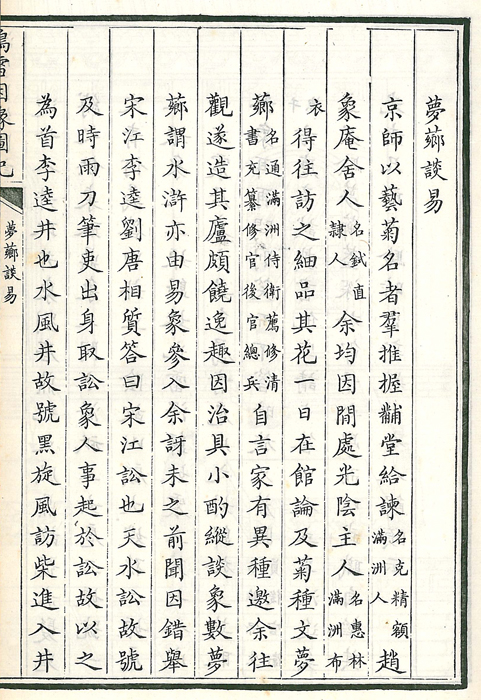 夢薌談易
京師以藝菊名者羣推握黼堂給諫名克精額滿洲人趙
象庵舍人名鉞直隸人余均因間處光陰主人名惠林滿洲布
衣得往訪之細品其花一日在館論及菊種文夢
薌名通滿洲侍衛薦修清書充纂修官後官總兵自言家有異種邀余往
觀遂造其廬頗饒逸趣因治具小酌縱談象數夢
薌謂水滸亦由易象參入余訝未之前聞因錯舉
宋江李逵劉唐相質答曰宋江訟也天水訟故號
及時雨刀筆吏出身取訟象人事起於訟故以之
為首李逵井也水風井故號黑旋風訪柴進入井
鴻雪因緣圖記
夢薌談易